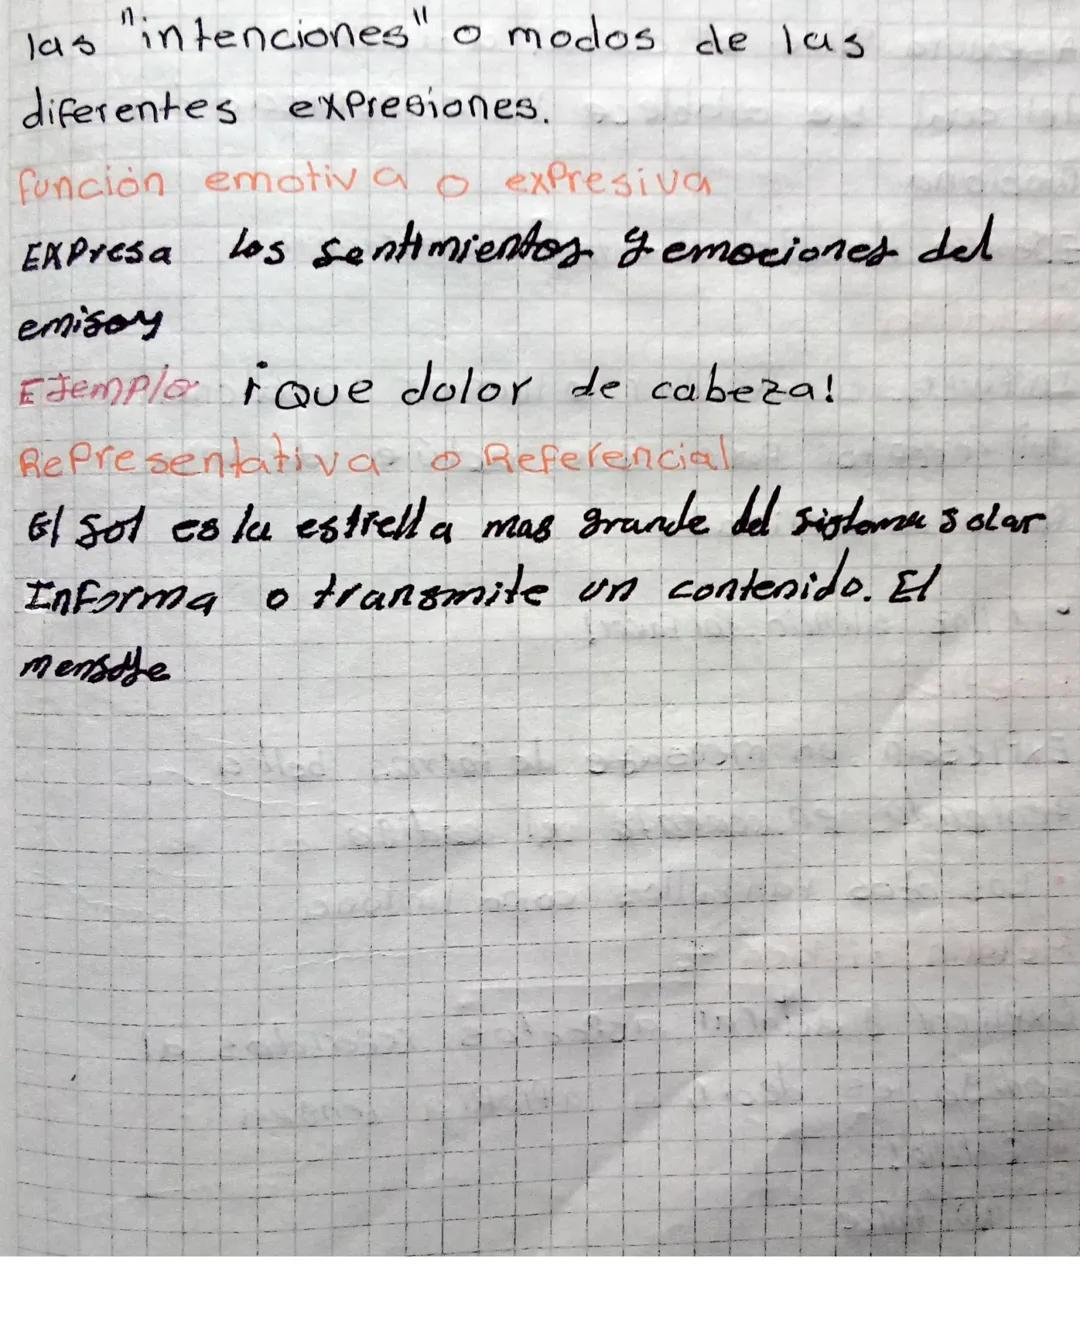 las "intenciones" o modos de las
diferentes expresiones.
función emotiva o expresiva
Expresa los sentimientos y emociones del
emisor
Ejemplo ¡Que dolor de cabeza!
Representativa o Referencial
El sol es la estrella mas grande del sistema solar
Informa o transmite un contenido. El
mensaje